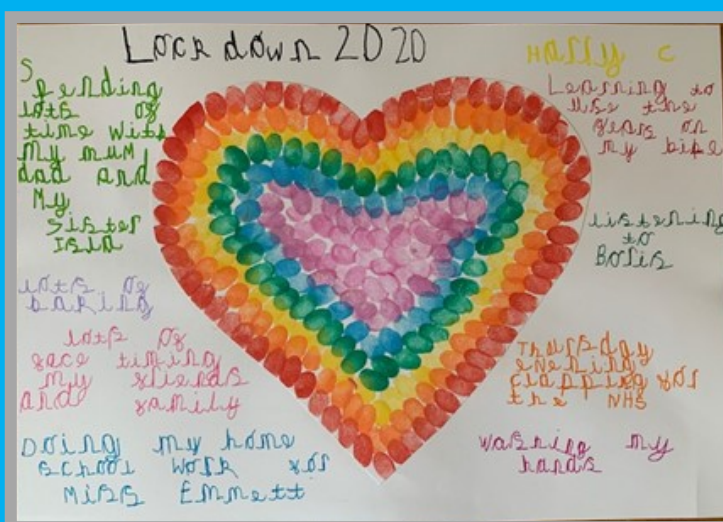 Lockdown 2020
Harry C
Spending
lots of
time with
my mum
dad and
My
Sister
Isla
lots of
baking
lots of
face timing
my friends
and family
Doing my home
school work for
Miss Emmett
Learning to
use the
gears on
my bike
listening
to
Boris
Thursday
evening
clapping for
the NHS
washing my
hands